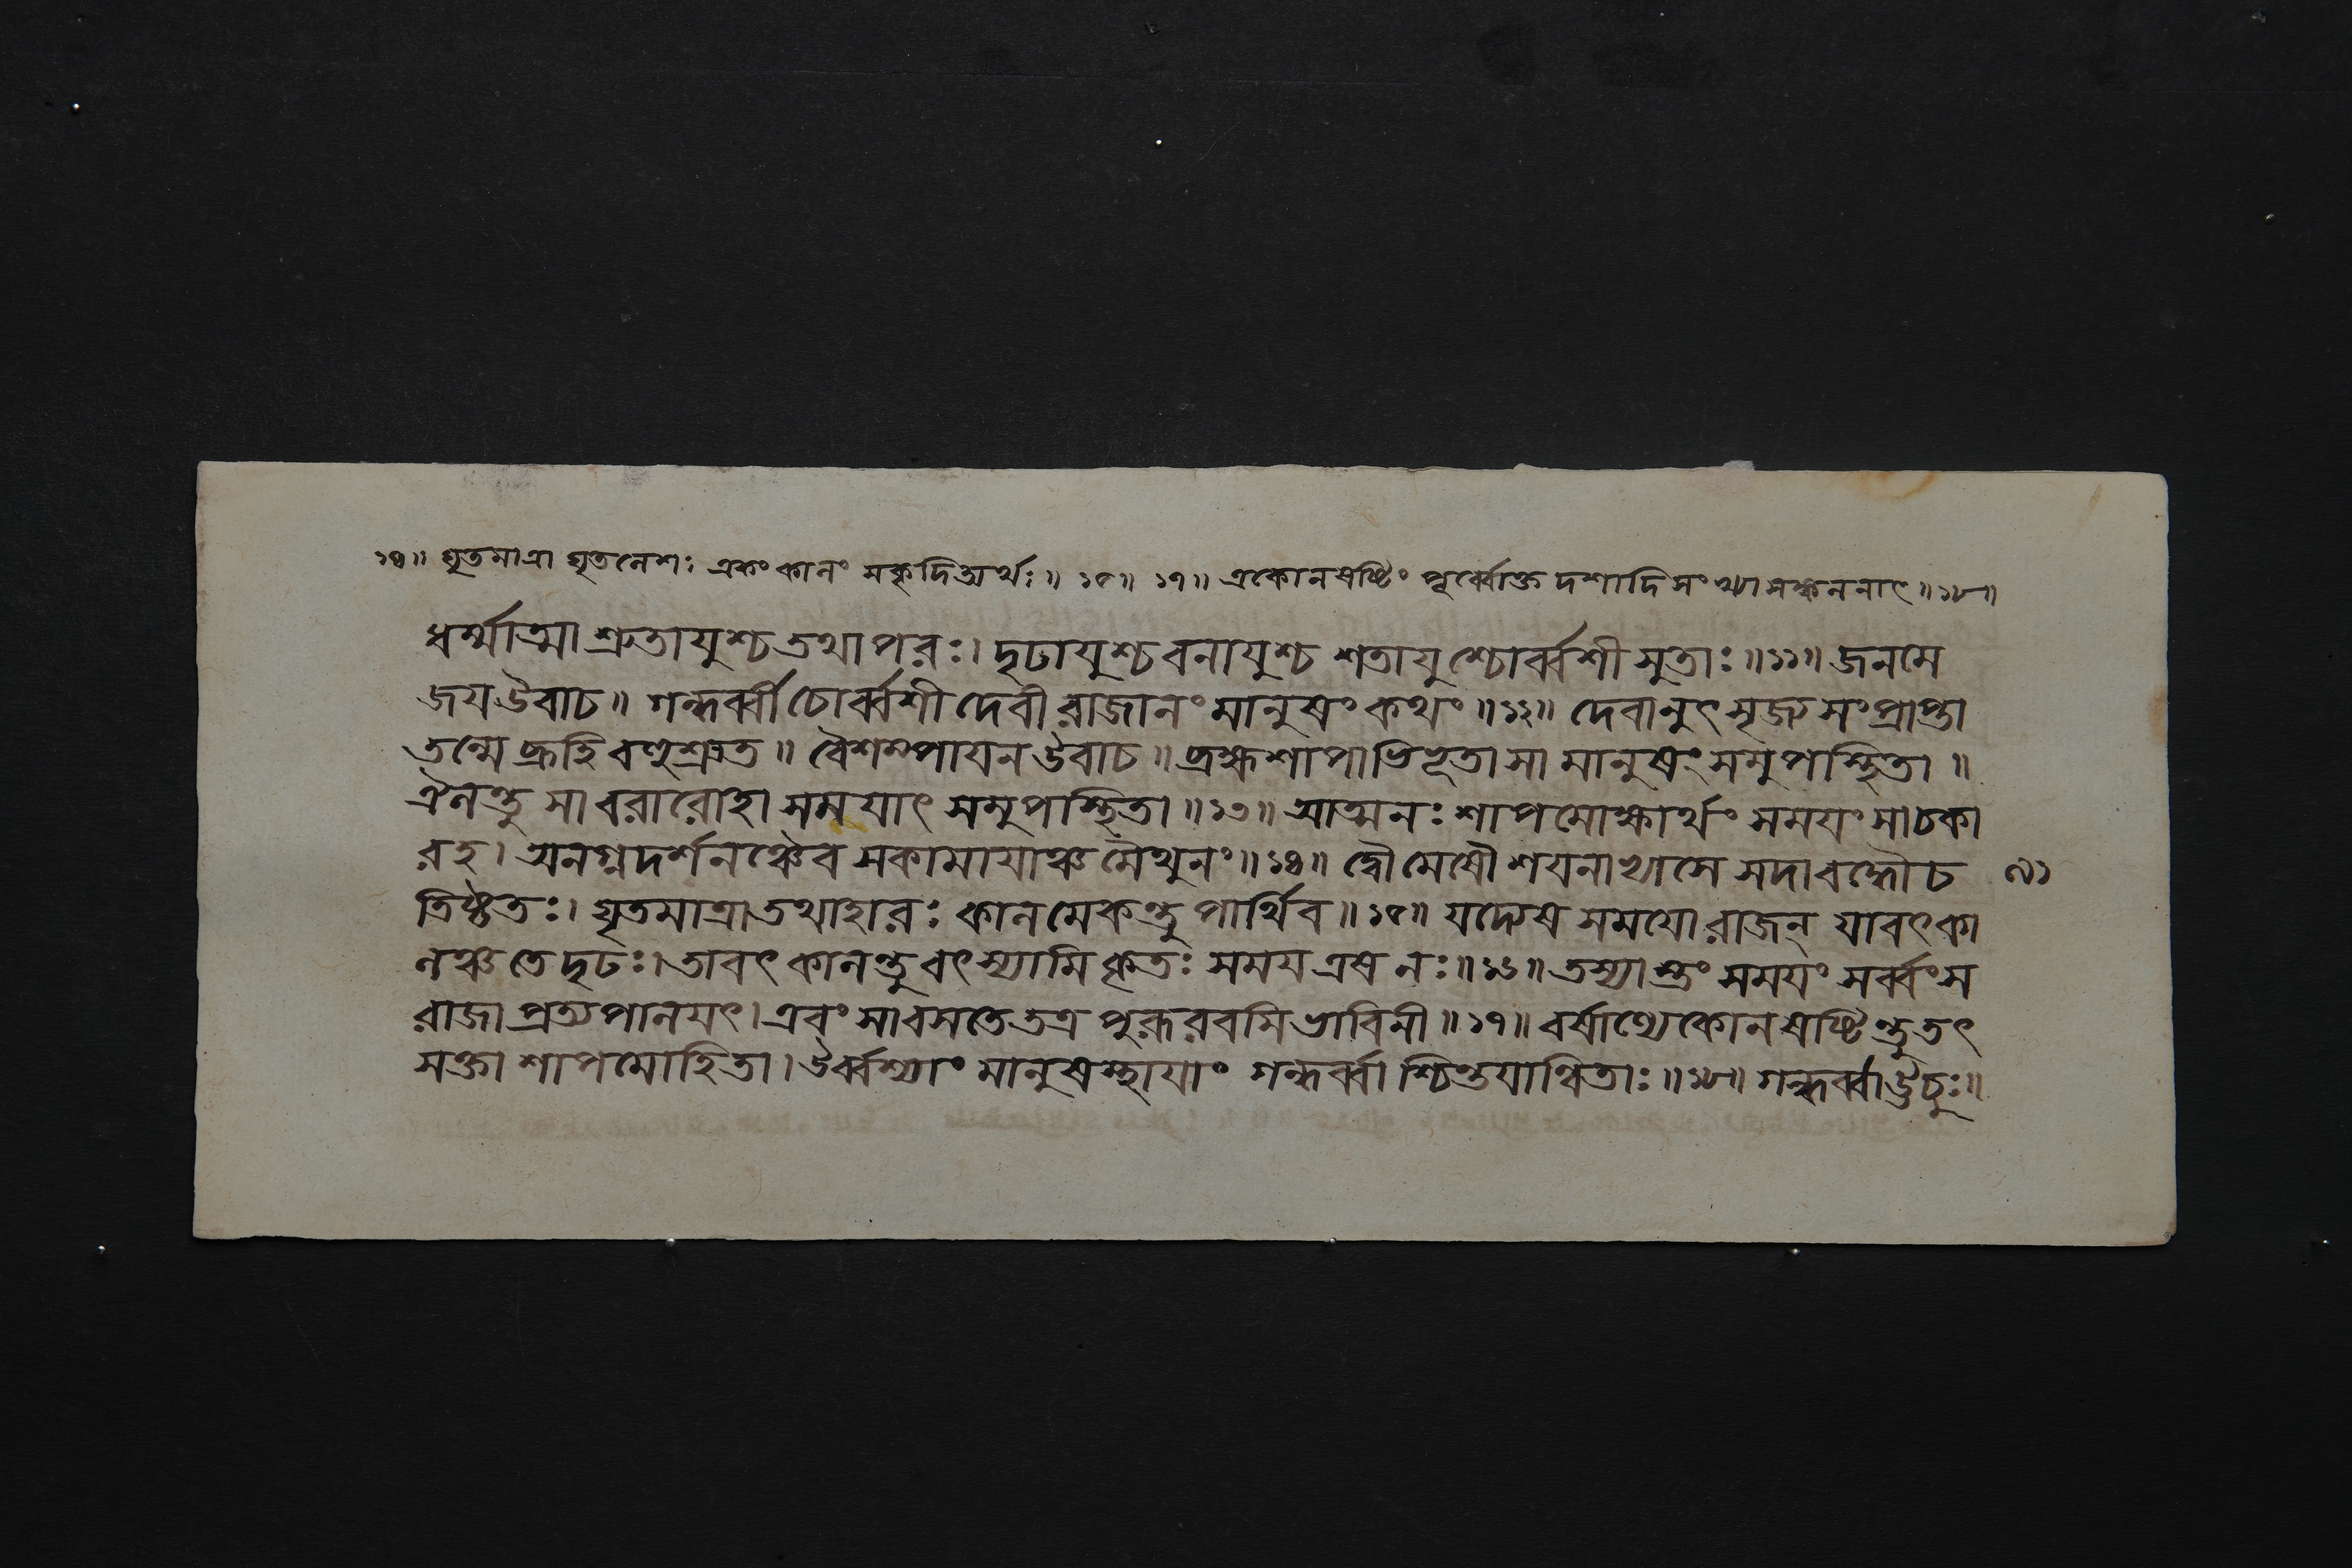 ১৪॥ ঘৃতমাত্রা ঘৃতলেশঃ একং কালং সকৃদিত্যর্থঃ॥ ১৫॥ ১৭॥ একোনষষ্টিং পূর্ব্বোক্ত দশাদিসংখ্যা সঙ্কলনাৎ॥১৮॥
ধর্ম্মাত্মা শ্রুতায়ুশ্চ তথাপরঃ। দৃঢায়ুশ্চ বনায়ুশ্চ শতায়ুশ্চোর্ব্বশী সুতাঃ॥১১॥ জনমে
জয় উবাচ॥ গন্ধর্ব্বী চোর্ব্বশী দেবী রাজানং মানুষং কথং॥১২॥ দেবানুৎসৃজ্য সংপ্রাপ্তা
তন্মে ব্রূহি বহুশ্রুত॥ বৈশম্পায়ন উবাচ॥ ব্রহ্মশাপাভিভূতা সা মানুষং সমুপস্থিতা॥
ঐলন্তু সা বরারোহা সময়াৎ সমুপস্থিতা॥১৩॥ আত্মনঃ শাপমোক্ষার্থং সময়ং সা চকা
রহ। অনগ্নদর্শনঞ্চৈব সকামায়াঞ্চ মৈথুনং॥১৪॥ দ্বৌ মেষৌ শয়নাভ্যাসে সদা বদ্ধৌ চ ৭১
তিষ্ঠতঃ। ঘৃতমাত্রা তথাহারঃ কালমেকন্তু পার্থিব॥১৫॥ যদ্যেষ সময়ো রাজন্ যাবৎকা
লঞ্চ তে দৃঢঃ। তাবৎ কালন্তু বৎস্যামি কৃতঃ সময় এষ নঃ॥১৬॥ তস্যাস্তং সময়ং সর্ব্বং স
রাজা প্রত্যপালয়ৎ। এবং সা বসতে তত্র পুরূরবসি ভাবিনী॥১৭॥ বর্ষাণ্যেকোনষষ্টিন্তু তৎ
সক্তা শাপমোহিতা। উর্ব্বশ্যাং মানুষস্থায়াং গন্ধর্ব্বাশ্চিন্তয়ান্বিতাঃ॥১৮॥ গন্ধর্ব্বা ঊচুঃ॥